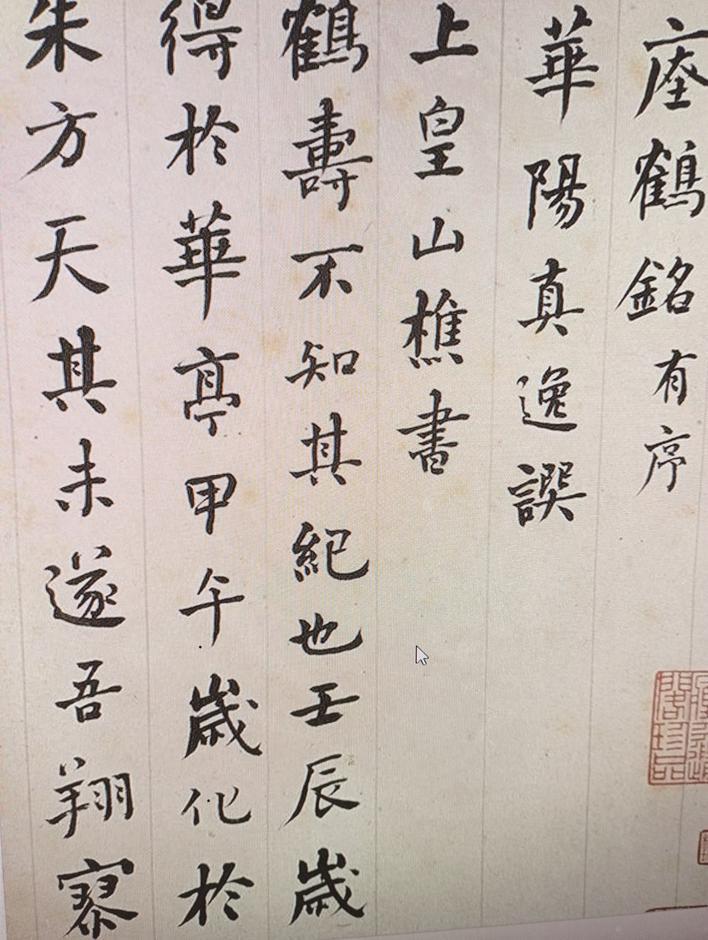 瘗鶴銘有序
華陽真逸譔
上皇山樵書
鶴壽不知其紀也壬辰歲
得於華亭甲午歲化於
朱方天其未遂吾翔寥